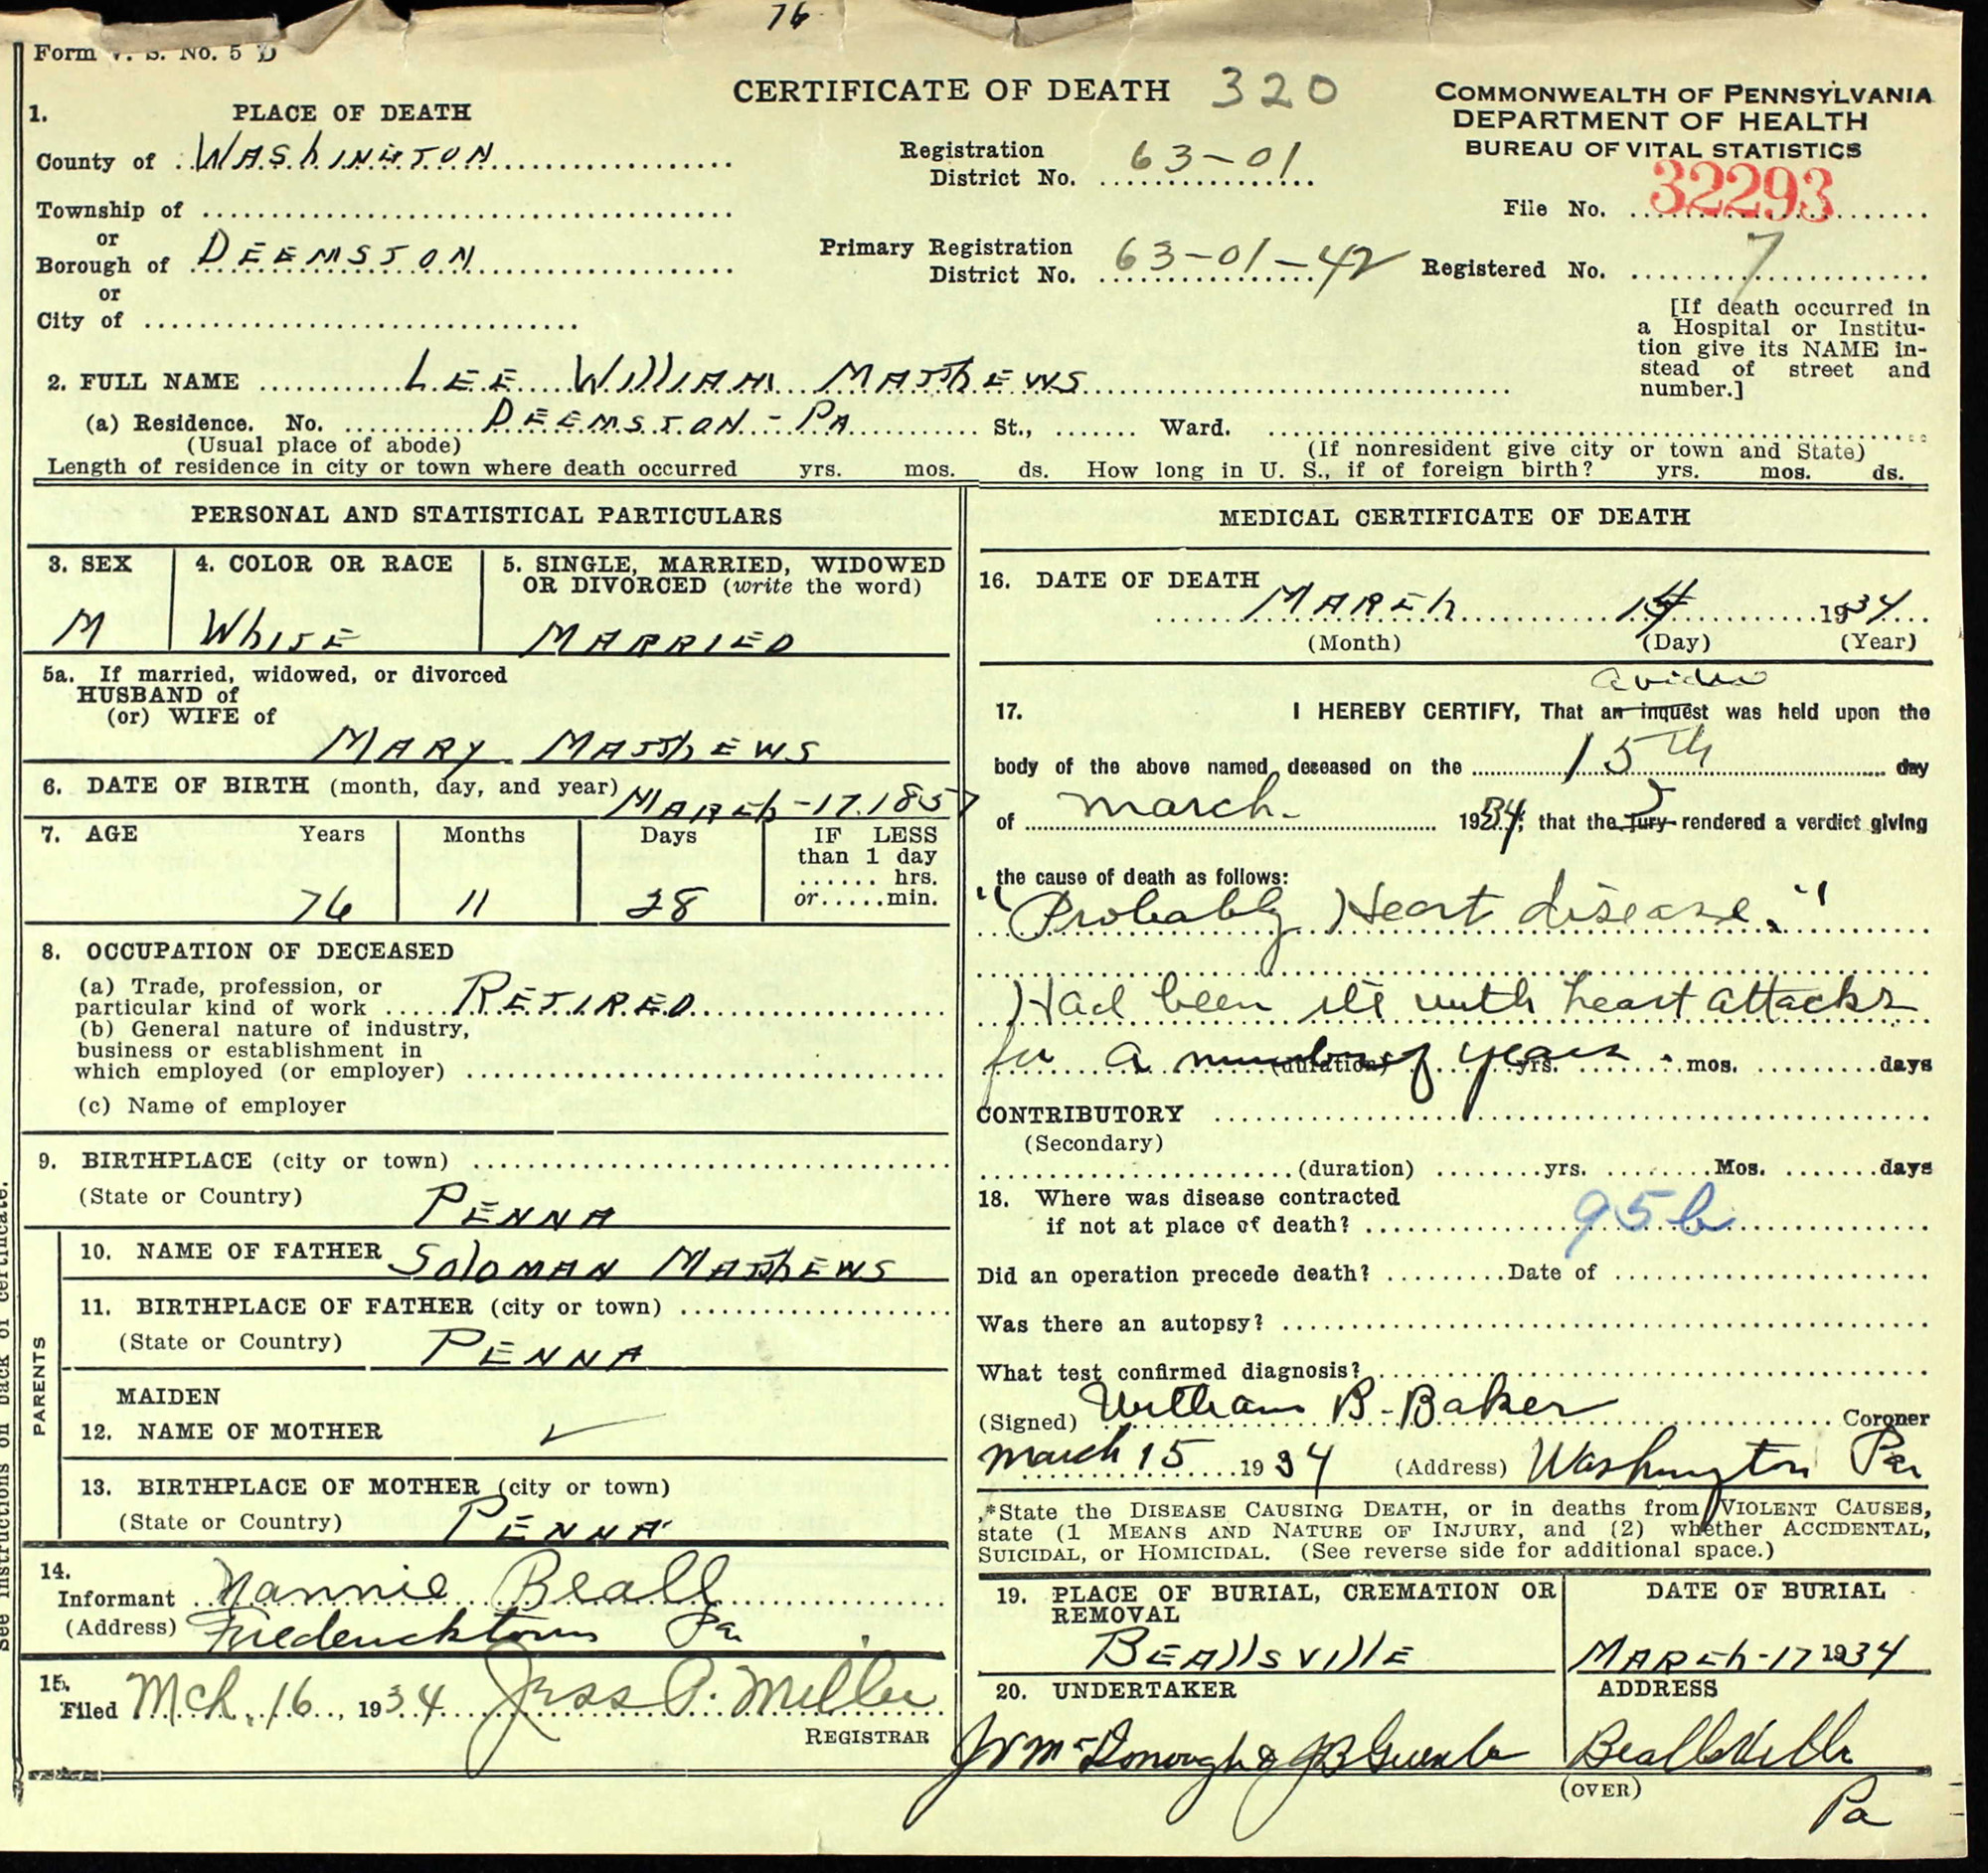 76
Form V. S. No. 5 D
CERTIFICATE OF DEATH 320
COMMONWEALTH OF PENNSYLVANIA
DEPARTMENT OF HEALTH
BUREAU OF VITAL STATISTICS
1. PLACE OF DEATH
County of WAShINGTON
Registration District No. 63-01
File No. 32293
Township of
or
Borough of DEEMSTON
Primary Registration District No. 63-01-42
Registered No. 7
or
City of
[If death occurred in
a Hospital or Institu-
tion give its NAME in-
stead of street and
number.]
2. FULL NAME LEE WIllIAM MATThEWS
(a) Residence. No. DEEMSTON - PA St., Ward.
(Usual place of abode) (If nonresident give city or town and State)
Length of residence in city or town where death occurred yrs. mos. ds. How long in U. S., if of foreign birth? yrs. mos. ds.
PERSONAL AND STATISTICAL PARTICULARS
3. SEX
M
4. COLOR OR RACE
WhITE
5. SINGLE, MARRIED, WIDOWED
OR DIVORCED (write the word)
MARRIED
5a. If married, widowed, or divorced
HUSBAND of
(or) WIFE of
MARY MATThEWS
6. DATE OF BIRTH (month, day, and year) MARCh-17.1857
7. AGE Years Months Days IF LESS
than 1 day
hrs.
or.....min.
76 11 28
8. OCCUPATION OF DECEASED
(a) Trade, profession, or
particular kind of work RETIRED
(b) General nature of industry,
business or establishment in
which employed (or employer)
(c) Name of employer
9. BIRTHPLACE (city or town)
(State or Country) PENNA
PARENTS
10. NAME OF FATHER SOlOMAN MATThEWS
11. BIRTHPLACE OF FATHER (city or town)
(State or Country) PENNA
MAIDEN
12. NAME OF MOTHER
13. BIRTHPLACE OF MOTHER (city or town)
(State or Country) PENNA
14.
Informant Nannie Beall
(Address) Fredericktown Pa
15.
Filed Mch. 16, 1934 Jess P. Miller
REGISTRAR
See instructions on back of certificate.
MEDICAL CERTIFICATE OF DEATH
16. DATE OF DEATH
MARCh 14 1934
(Month) (Day) (Year)
17. I HEREBY CERTIFY, That an inquest was held upon the
body of the above named deceased on the 15th day
of March 1934, that the Jury rendered a verdict giving
the cause of death as follows:
"Probably Heart disease."
Had been ill with heart attacks
for a number of years.
(duration) yrs. mos. days
CONTRIBUTORY
(Secondary)
(duration) yrs. Mos. days
18. Where was disease contracted
if not at place of death? 95b
Did an operation precede death? Date of
Was there an autopsy?
What test confirmed diagnosis?
(Signed) William B. Baker Coroner
March 15 1934 (Address) Washington Pa
*State the DISEASE CAUSING DEATH, or in deaths from VIOLENT CAUSES,
state (1 MEANS AND NATURE OF INJURY, and (2) whether ACCIDENTAL,
SUICIDAL, or HOMICIDAL. (See reverse side for additional space.)
19. PLACE OF BURIAL, CREMATION OR
REMOVAL
BEAllSVIllE
DATE OF BURIAL
MARCh-17 1934
20. UNDERTAKER
McDonough &
ADDRESS
Beallsville
Pa
(OVER)